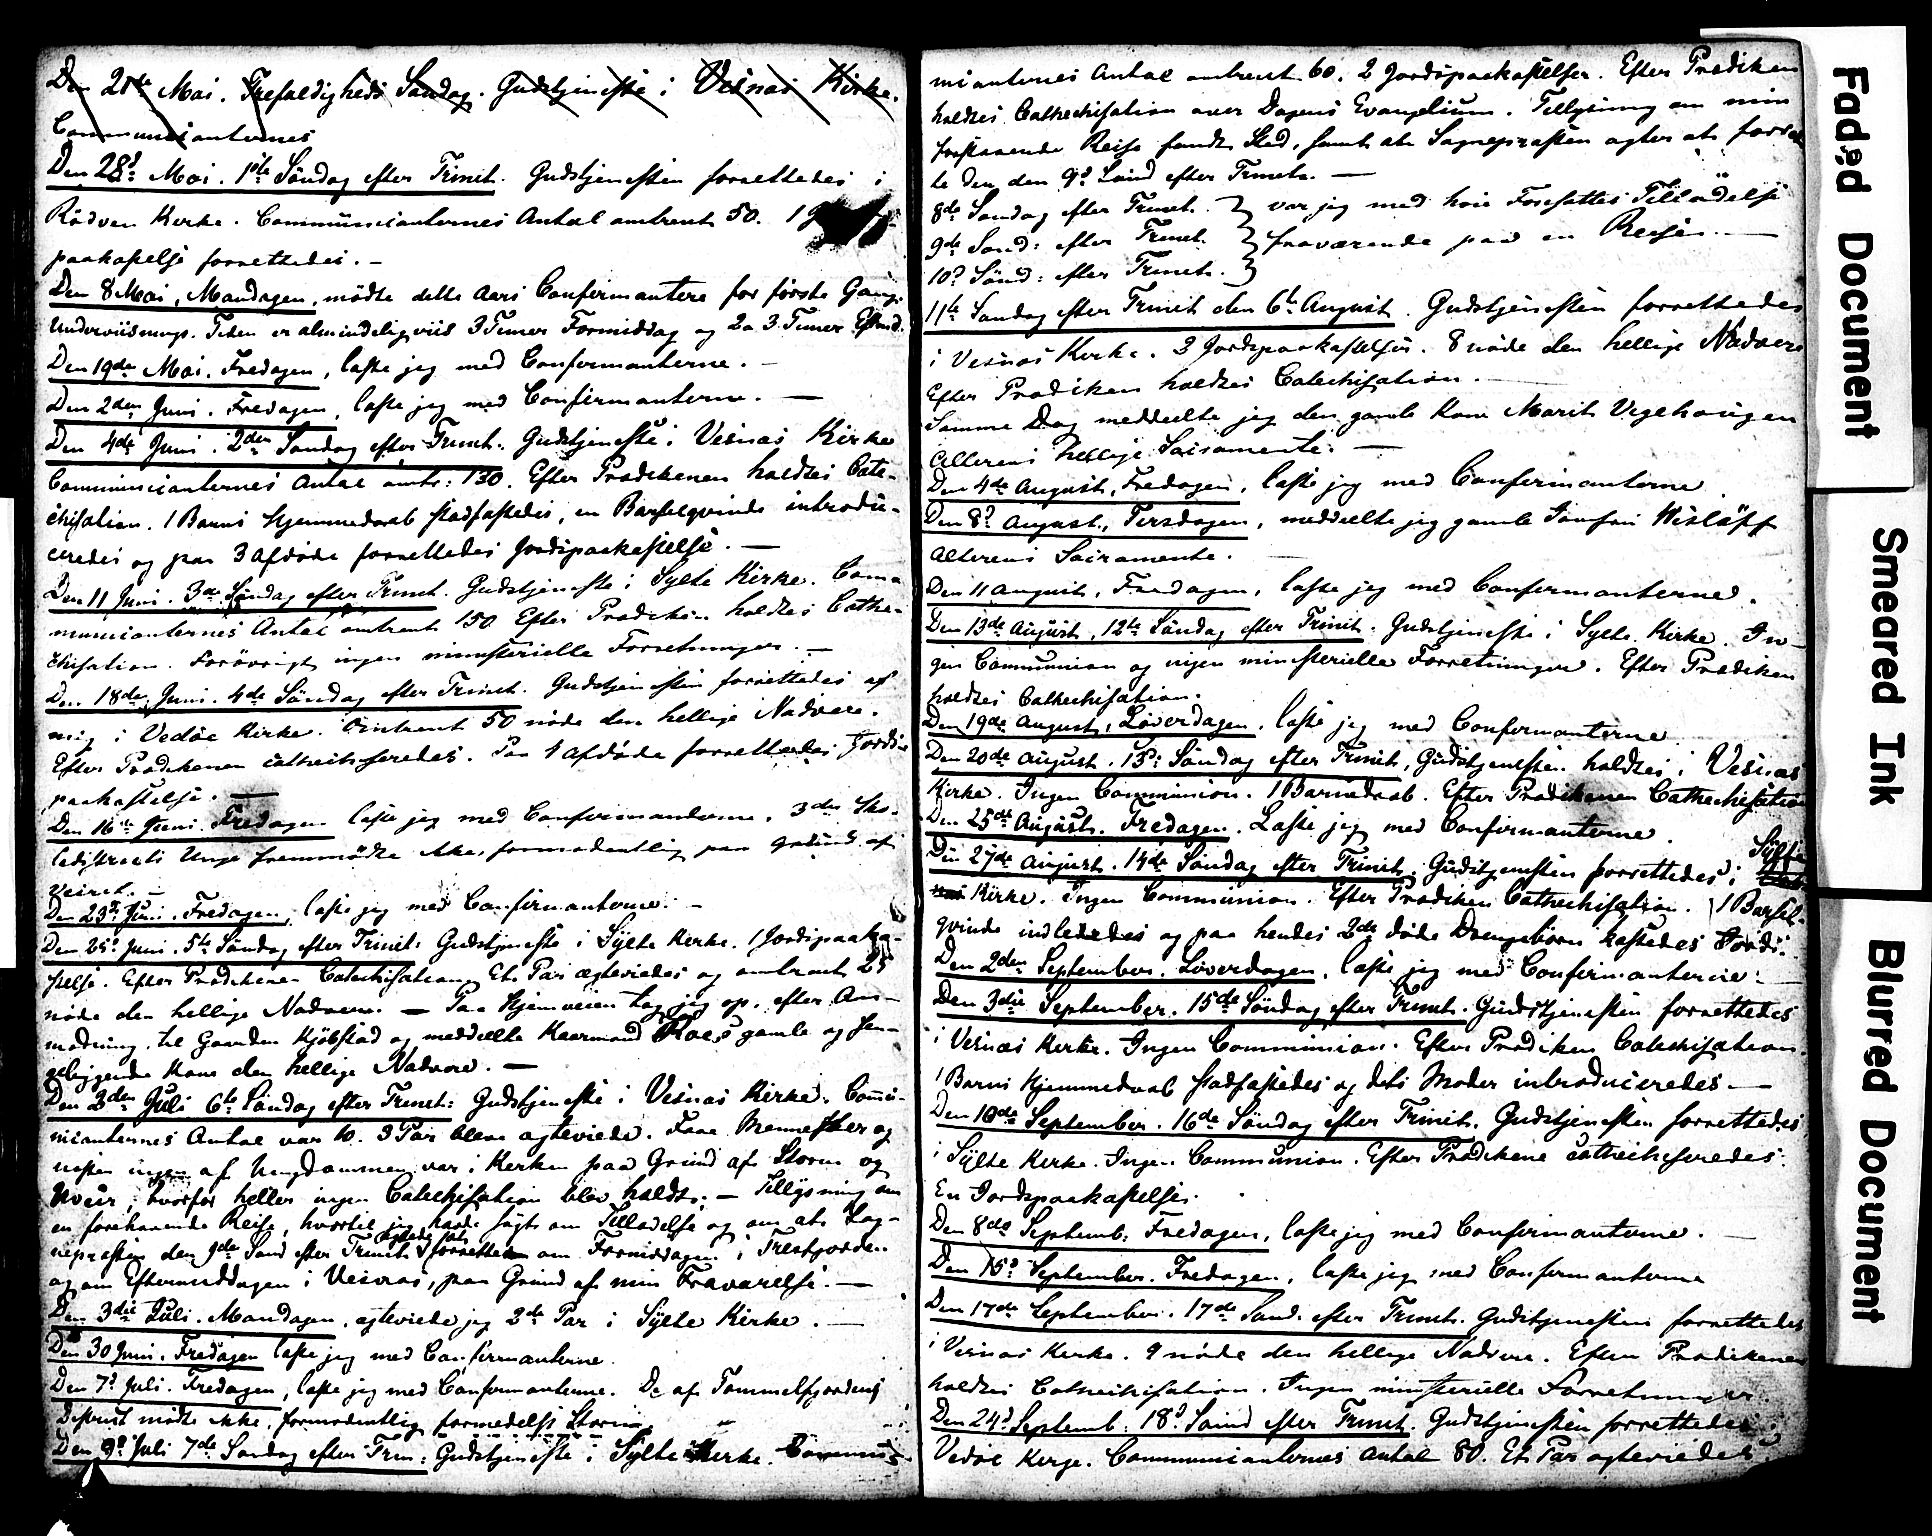 Den 21de Mai. Trefoldigheds Søndag. Gudstjeneste i Vesnæs Kirke.
Communicanternes
Den 28d. Mai. 1ste Söndag efter Trinit. Gudstjenesten forrettedes i
Rödven Kirke. Communicanternes Antal omtrent 50. 1
paakastelse forrettedes. -
Den 8 Mai, Mandagen, mödte dette Aars Confirmantere for förste Gang.
Underviisnings-Tiden er almindeligviis 3 Timer Formiddag og 2 a 3 Timer Eftmd.
Den 19de Mai. Fredagen, læste jeg med Confirmanterne. -
Den 2den Juni. Fredagen, læste jeg med Confirmanterne. -
Den 4de Juni. 2den Söndag efter Trinit. Gudstjeneste i Vesnæs Kirke
Communicanternes Antal omtr: 130. Efter Prædikenen holdtes Cate-
chisation. 1 Barns Hjemmedaab stadfæstedes, en Barselqvinde introdu-
ceredes og paa 3 Afdöde forrettedes Jordspaakastelse. -
Den 11 Juni. 3de Söndag efter Trinit. Gudstjeneste i Sylte Kirke. Com-
municanternes Antal omtrent 150 Efter Prædiken holdtes Cathe-
chisation. Forövrigt ingen ministerielle Forretninger. -
Den 18de Juni. 4de Söndag efter Trinit. Gudstjenesten forrettedes af
mig i Vedöe Kirke. Omtrent 50 nöde den hellige Nadvere.
Efter Prædikenen catheciseredes. Paa 1 Afdöde forrettedes Jords-
paakastelse. -
Den 16de Juni. Fredagen læste jeg med Confirmanterne. 3die Sko-
ledistricts Unge fremmödte ikke, formodentlig paa Grund af
Veiret. -
Den 23de Juni. Fredagen, læste jeg med Confirmanterne. -
Den 25d. Juni. 5te Söndag efter Trinit: Gudstjeneste i Sylte Kirke. 1 Jordspaaka-
stelse. Efter Prædikenen Catechisation. Et Par ægteviedes og omtrent 25
nöde den hellige Nadvere. - Paa Hjemveien tog jeg op, efter An-
modning, til Gaarden Kjöbstad og meddeelte Kaarmand Roes gamle og sen-
geliggende Kone den hellige Nadvere. -
Den 2den Juli 6te Söndag efter Trinit: Gudstjeneste i Vesnæs Kirke. Commu-
nicanternes Antal var 10. 3 Par bleve ægteviede. Faae Mennesker og
næsten ingen af Ungdommen var i Kirken paa Grund af Storm og
Uveir, hvorfor heller ingen Catechisation blev holdt. - Tillysning om
en forehavende Reise, hvortil jeg havde sögt om Tilladelse og om at Sog-
nepræsten den 9de Sönd efter Trinit. agtede at forrette om Formiddagen i Tresfjorden
og om Eftermiddagen i Vesnæs, paa Grund af min Fraværelse. -
Den 3die Juli. Mandagen, ægteviede jeg 2de Par i Sylte Kirke. -
Den 30 Juni. Fredagen læste jeg med Confirmanterne.
Den 7d. Juli. Fredagen, læste jeg med Confirmanterne. De af Tommelfjordens
District mödte ikke, formodentlig formedelst Storm.
Den 9d. Juli 7de Söndag efter Trin: Gudstjeneste i Sylte Kirke. Commu-
nicanternes Antal omtrent 60. 2 Jordspaakastelser. Efter Prædiken
holdtes Cathechisation over Dagens Evangelium. Tillysning om min
forestaaende Reise fandt Sted, samt at Sognepræsten agter at forret-
te den den 9d. Sönd efter Trinit. -
8de Söndag efter Trinit. } var jeg med høie Foresattes Tilladelse
9de Sönd: efter Trinit. } fraværende paa en Reise. -
10d. Sönd: efter Trinit. }
11te Söndag efter Trinit den 6te August. Gudstjenesten forrettedes
i Vesnæs Kirke. 3 Jordspaakastelser. 8 nöde den hellige Nadvere
Efter Prædiken holdtes Catechisation.
Samme Dag meddeelte jeg den gamle Kone Marit Vegehaugen
Alterens hellige Sacramente. -
Den 4de August, Fredagen, læste jeg med Confirmanterne.
Den 8d. August, Tirsdagen, meddeelte jeg gamle Jomfru Wislöff
Alterens Sacramente.
Den 11 August, Fredagen, læste jeg med Confirmanterne.
Den 13de August, 12te Söndag efter Trinit. Gudstjeneste i Sylte Kirke. In-
gen Communion og ingen ministerielle Forretninger. Efter Prædiken
holdtes Cathechisation.
Den 19de August, Löverdagen, læste jeg med Confirmanterne
Den 20de August. 13: Söndag efter Trinit, Gudstjenesten holdtes i Vesnæs
Kirke. Ingen Communion. 1 Barnedaab. Efter Prædikenen Cathechisation
Den 25de August. Fredagen. Læste jeg med Confirmanterne.
Den 27de August. 14de Söndag efter Trinit. Gudstjenesten forrettedes i Sylte
Kirke. Ingen Communion. Efter Prædiken Cathechisation. 1 Barsel-
qvinde indlededes og paa hendes 2de döde Drengebörn kastedes Jords.
Den 2den September. Löverdagen, læste jeg med Confirmanterne.
Den 3die September. 15de Söndag efter Trinit. Gudstjenesten forrettedes
i Vesnæs Kirke. Ingen Communion. Efter Prædiken Catechisation.
1 Barns Hjemmedaab stadfæstedes og dets Moder introduceredes. -
Den 10de September. 16de Söndag efter Trinit. Gudstjenesten forrettedes
i Sylte Kirke. Ingen Communion. Efter Prædikene catheciseredes.
En Jordspaakastelse.
Den 8de Septemb. Fredagen, læste jeg med Confirmanterne. -
Den 15d. September. Fredagen, læste jeg med Confirmanterne
Den 17de September. 17de Sönd. efter Trinit. Gudstjenesten forrettedes
i Vesnæs Kirke. 9 nöde den hellige Nadvere. Efter Prædikenen
holdtes Catechisation. Ingen ministerielle Forretninger.
Den 24d. Septemb. 18d. Sönd efter Trinit. Gudstjenesten forrettedes i
Vedöe Kirke. Communicanternes Antal 80. Et Par ægteviedes.
Faded Document
Smeared Ink
Blurred Document